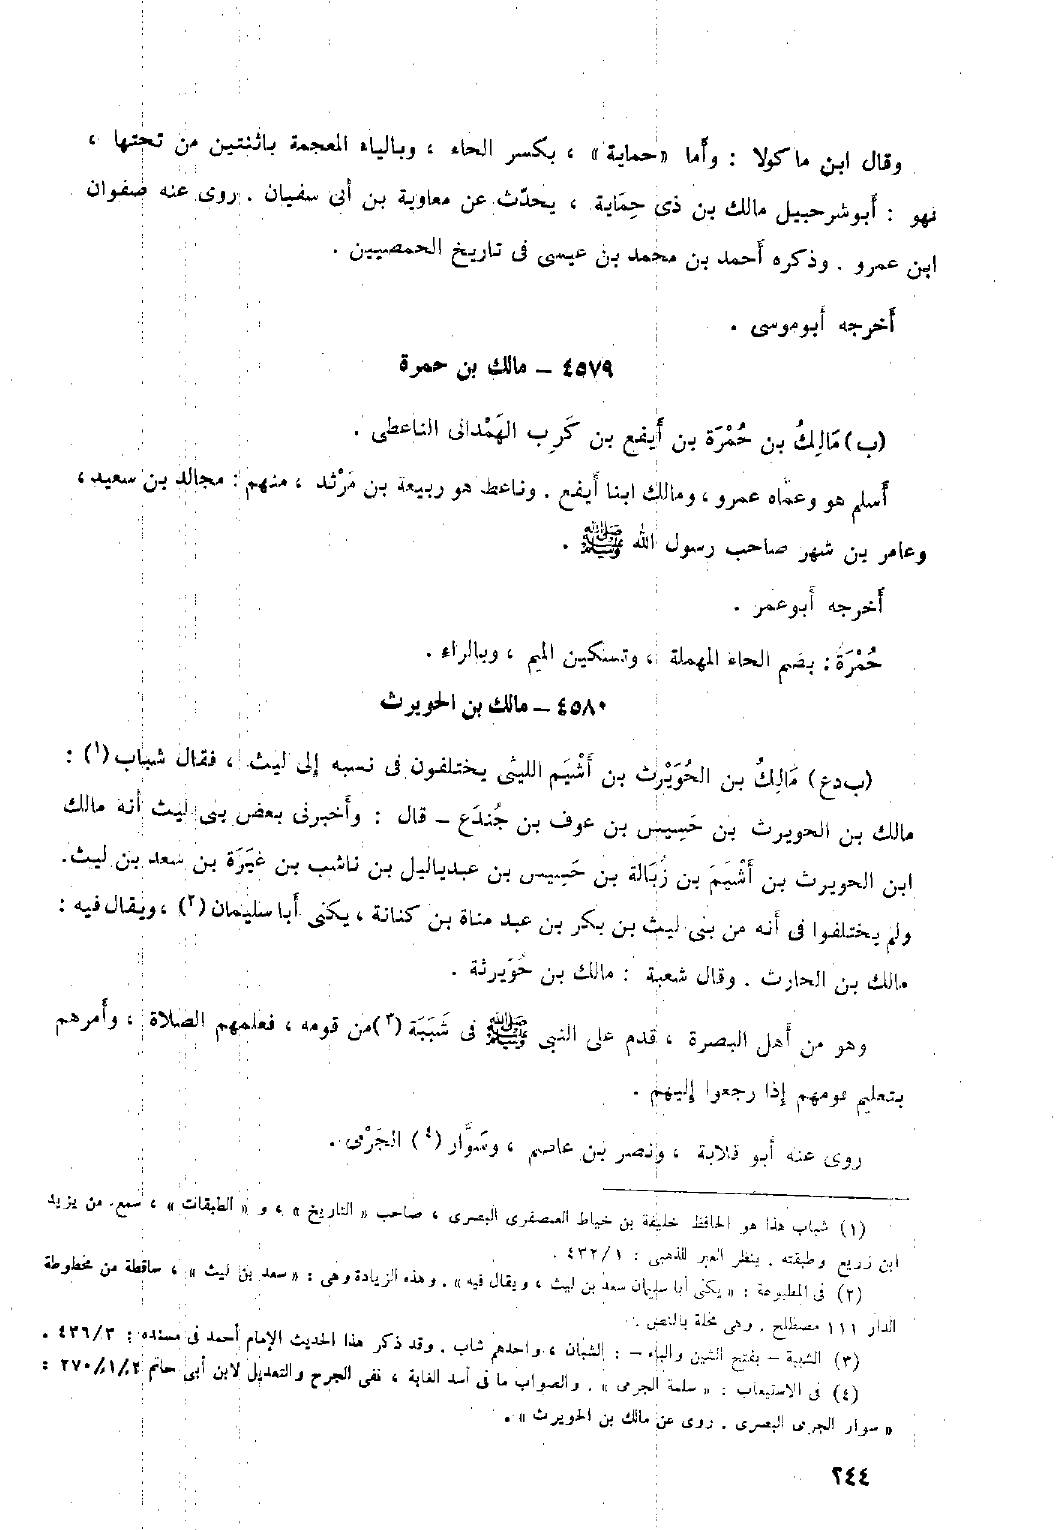 وقال ابن ماكولا : وأما «حماية» ، بكسر الحاء ، وبالياء المعجمة باثنتين من تحتها ،
فهو : أبوشرحبيل مالك بن ذى حِمَاية ، يحدّث عن معاوية بن أبى سفيان . روى عنه صفوان
ابن عمرو . وذكره أحمد بن محمد بن عيسى فى تاريخ الحمصيين .
أخرجه أبوموسى .
٤٥٧٩ – مالك بن حمرة
(ب) مَالِكُ بن حُمْرَة بن أيفع بن كَرِب الهَمْدانى الناعطى .
أسلم هو وعمَّاه عمرو ، ومالك ابنا أيفع . وناعط هو ربيعة بن مَرْثد ، منهم : مجالد بن سعيد ،
وعامر بن شهر صاحب رسول الله ﷺ .
أخرجه أبوعمر .
حُمْرَة : بضم الحاء المهملة ، وتسكين الميم ، وبالراء .
٤٥٨٠ – مالك بن الحويرث
(ب د ع) مَالِكُ بن الحُوَيْرِث بن أَشْيَم الليثى يختلفون فى نسبه إلى ليث ، فقال شباب (١) :
مالك بن الحويرث بن حَسِيس بن عوف بن جُندَع – قال : وأخبرنى بعض بنى ليث أنه مالك
ابن الحويرث بن أَشْيَمَ بن زُبَالة بن حَسِيس بن عبدياليل بن ناشب بن غِيَرَة بن سعد بن ليث.
ولم يختلفوا فى أنه من بنى ليث بن بكر بن عبد مناة بن كنانة ، يكنى أبا سليمان (٢) ، ويقال فيه :
مالك بن الحارث . وقال شعبة : مالك بن حُوَيرثة .
وهو من أهل البصرة ، قدم على النبى ﷺ فى شَبَبَة (٣) من قومه ، فعلمهم الصلاة ، وأمرهم
بتعليم قومهم إذا رجعوا إليهم .
روى عنه أبو قلابة ، ونصر بن عاصم ، وسَوَّار (٤) الجَرْمى .
(١) شباب هذا هو الحافظ خليفة بن خياط العصفرى البصرى ، صاحب « التاريخ » ، و « الطبقات » ، سمع من يزيد
ابن زريع وطبقته . ينظر العبر للذهبى : ١/ ٤٣٢ .
(٢) فى المطبوعة : « يكنى أبا سليمان سعد بن ليث ، ويقال فيه » . وهذه الزيادة وهى : « سعد بن ليث » ، ساقطة من مخطوطة
الدار ١١١ مصطلح . وهى مخلة بالنص .
(٣) الشببة – بفتح الشين والباء – : الشبان ، واحدهم شاب . وقد ذكر هذا الحديث الإمام أحمد فى مسنده : ٣/ ٤٣٦ .
(٤) فى الاستيعاب : « سلمة الجرمى » . والصواب ما فى أسد الغابة ، ففى الجرح والتعديل لابن أبى حاتم ٢/ ١/ ٢٧٠ :
« سوار الجرمى البصرى . روى عن مالك بن الحويرث » .
٢٤٤